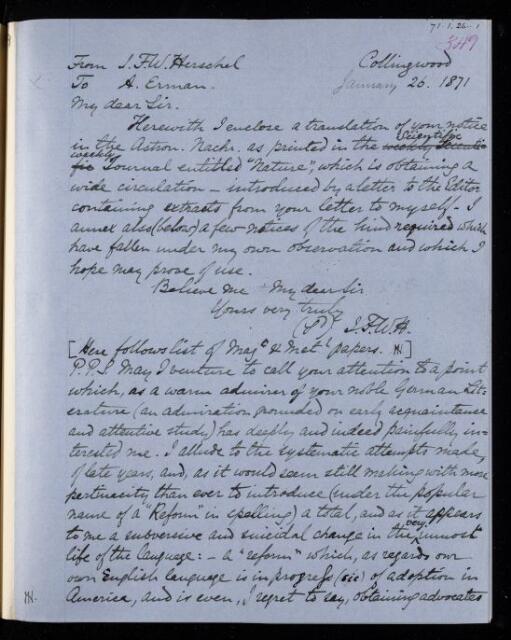 71.1.26.1
349
From J.F.W. Herschel Collingwood
To A. Erman. January 26. 1871
My dear Sir.
Herewith I enclose a translation of your notice
in the Astron. Nachr. as printed in the weekly Scienti- Scientific
fic weekly Journal entitled "Nature", which is obtaining a
wide circulation – introduced by a letter to the Editor
containing extracts from your letter to myself – I
annex also (below) a few notices of the kind required which
have fallen under my own observation and which I
hope may prove of use.
Believe me My dear Sir
Yours very truly
J.F.W.H.
[Here follows list of Mag.c & Met.l papers. ]
P.P.S. May I venture to call your attention to a point
which, as a warm admirer of your noble German Lit-
erature (an admiration grounded on early acquaintance
and attentive study) has deeply and indeed painfully in-
terested me. I allude to the systematic attempts made,
of late years, and, as it would seem still making with more
pertinacity than ever to introduce (under the popular
name of a "Reform" in spelling) a total, and as it appears
to me a subversive and suicidal change in the very inmost
life of the language: – a "reform" which, as regards our
own English language is in progress (sic) of adoption in
America, and is even, I regret to say, obtaining advocates